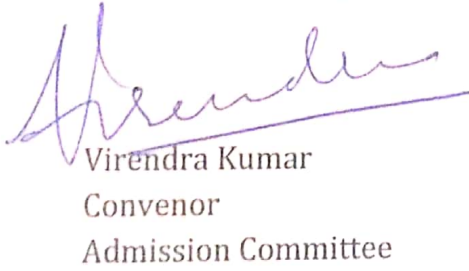 Virendra
Virendra Kumar
Convenor
Admission Committee